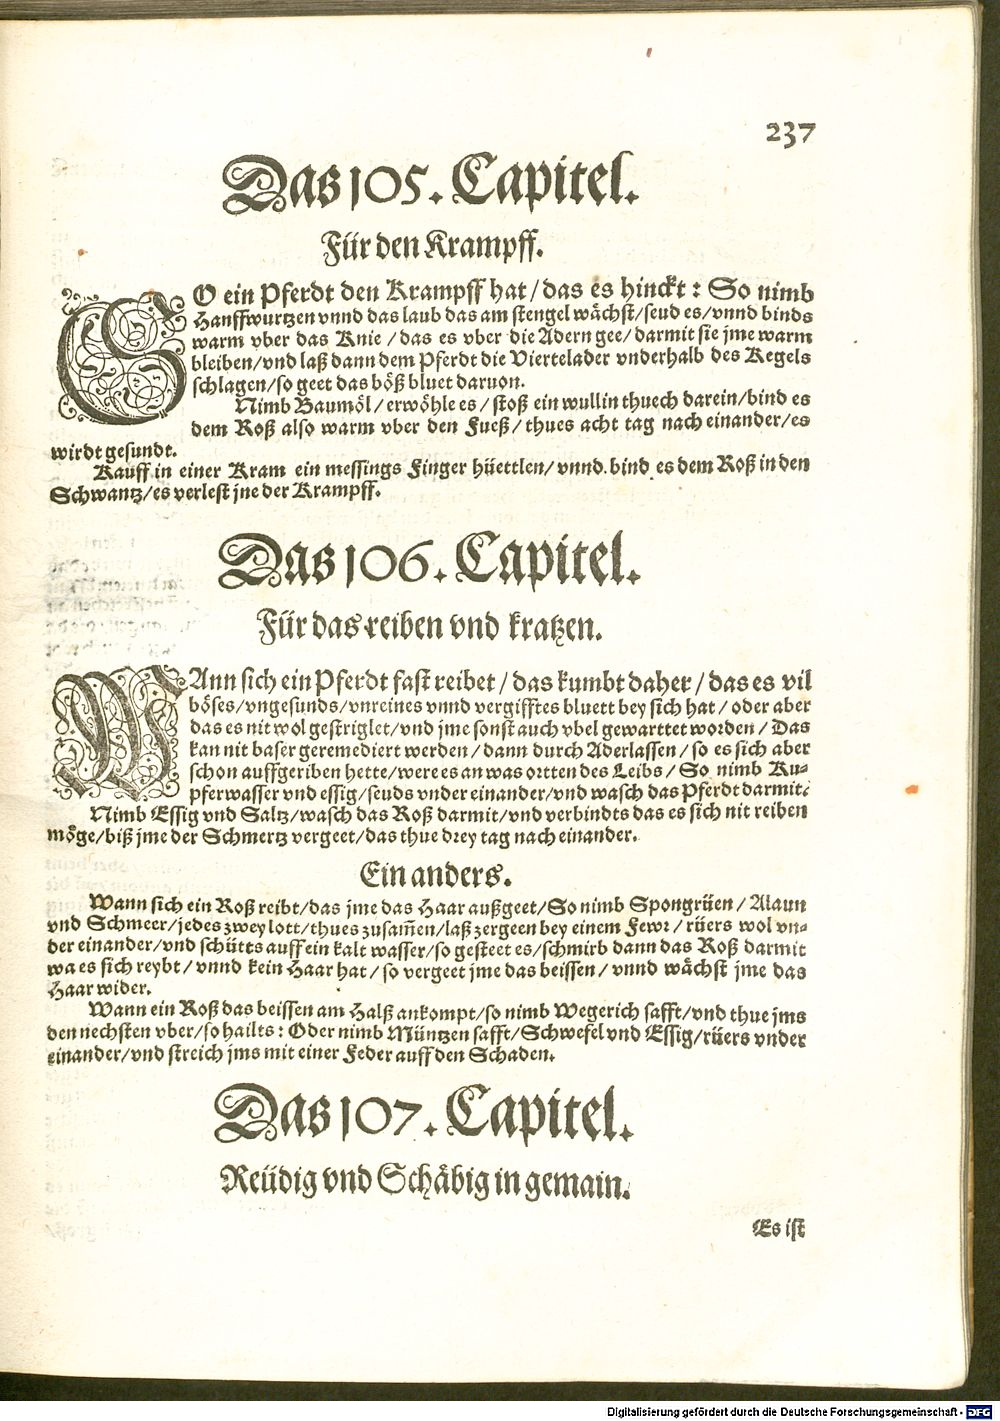 237
Das 105. Capitel.
Für den Krampff.
SO ein Pferdt den Krampff hat / das es hinckt: So nimb
Hanffwurtzen vnnd das laub das am stengel wächst/seud es/vnnd binds
warm vber das Knie / das es vber die Adern gee/ darmit sie jme warm
bleiben/vnd laß dann dem Pferdt die Viertelader vnderhalb des Kegels
schlagen/so geet das böß bluet daruon.
Nimb Baumöl/ erwöhle es / stoß ein wullin thuech darein/bind es
dem Roß also warm vber den Fueß/ thues acht tag nach einander/es
wirdt gesundt.
Kauff in einer Kram ein messings Finger hüettlen/ vnnd bind es dem Roß in den
Schwantz/es verlest jne der Krampff.
Das 106. Capitel.
Für das reiben vnd kratzen.
WAnn sich ein Pferdt fast reibet / das kumbt daher / das es vil
böses/vngesunds/vnreines vnnd vergifftes bluett bey sich hat / oder aber
das es nit wol gestriglet/vnd jme sonst auch vbel gewarttet worden / Das
kan nit baser geremediert werden / dann durch Aderlassen / so es sich aber
schon auffgeriben hette/were es an was ortten des Leibs / So nimb Ku-
pferwasser vnd essig/seuds vnder einander/vnd wasch das Pferdt darmit/
Nimb Essig vnd Saltz/wasch das Roß darmit/vnd verbindts das es sich nit reiben
möge/biß jme der Schmertz vergeet/das thue drey tag nach einander.
Ein anders.
Wann sich ein Roß reibt/das jme das Haar außgeet/So nimb Spongrüen / Alaun
vnd Schmeer/jedes zwey lott/thues zusam̃en/laß zergeen bey einem Fewr / rüers wol vn-
der einander/vnd schütts auff ein kalt wasser/so gesteet es/schmirb dann das Roß darmit
wa es sich reybt/ vnnd kein Haar hat / so vergeet jme das beissen / vnnd wächst jme das
Haar wider.
Wann ein Roß das beissen am Halß ankompt/so nimb Wegerich safft/vnd thue jms
den nechsten vber/so hailts: Oder nimb Müntzen safft/Schwefel vnd Essig/rüers vnder
einander/vnd streich jms mit einer Feder auff den Schaden.
Das 107. Capitel.
Reüdig vnd Schäbig in gemain.
Es ist
Digitalisierung gefördert durch die Deutsche Forschungsgemeinschaft - DFG